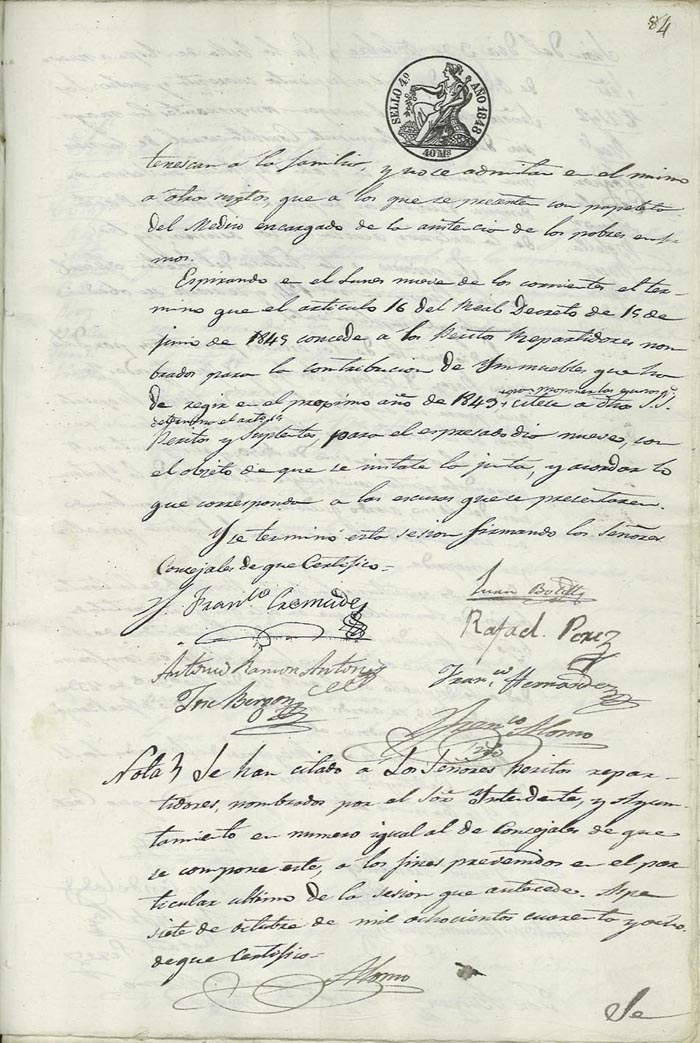 84
SELLO 4º AÑO 1848
40 Ms
tenescan a la familia, y no ce admitan en el mismo
a otros sugtos, que a los que se precenten con papeleta
del Medico encargado de la asistencia de los pobres enfer-
mos.
Espirando en el Lunes nueve de los corrientes el ter-
mino que el articulo 16 del Real Decreto de 15 de
junio de 1845 concede a los Peritos Repartidores nom-
brados para la contribucion de Ynmuebles, que ha
de regir en el proximo año de 1849, citece a dho S.S.
determina el art.
Peritos y Suplentes, para el espresado dia nueve, con
el objeto de que se instale la junta, y acordar lo
que corresponda a las escusas que se presentaren.
Y se terminó esta sesion firmando los Señores
Concejales de que Certifico=
Y. Franco Cremades
Juan Botella
Rafael Perez
Antonio Ramon Antonio
Franco Hernandez
Jose Bergon
Franco Alonso
Srio
Nota } Se han citado a los Señores peritos repar-
tidores, nombrados por el Sor Intendente, y Ayun-
tamiento en numero igual al de Concejales de que
se compone este, a los fines prevenidos en el par-
ticular ultimo de la sesion que antecede. Aspe
siete de octubre de mil ochocientos cuarenta y ocho.
de que Certifico=
Alonso
Se